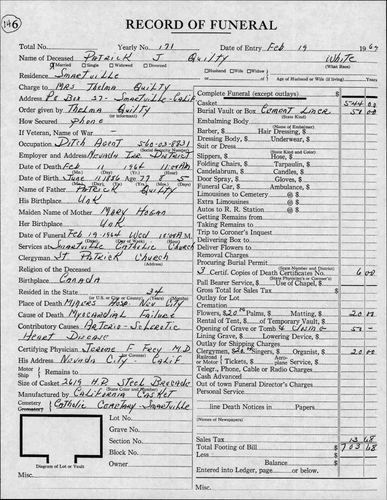 146
RECORD OF FUNERAL
Total No. Yearly No. 171 Date of Entry Feb 19 1964
Name of Deceased PATRICK J QUILTY White
Married Single Widowed Divorced (What Race)
Residence Smartville Husband Wife Widow of Age of Husband or Wife (if living)
Charge to MRS Thelma Quilty
Address P.O Box 37 - Smartville - Calif
Order given by Thelma Quilty
(or informant)
How Secured phone
If Veteran, Name of War -
Occupation Ditch Agent 560-03-8831
(Social Security Number)
Employer and Address Nevada Irr. District
Date of Death Feb 11 1964
Date of Birth June 11 1886 Age 77
Name of Father PATRICK Quilty
His Birthplace UnK
Maiden Name of Mother MARY Hogan
Her Birthplace UnK
Date of Funeral Feb 19-1964 Wed 10:00 A.M.
Services at Smartville Catholic Church
Clergyman St PATRICK Church
(Address)
Religion of the Deceased
Birthplace CANADA
Resided in the State 34
(or U.S. or City or County)
Place of Death MINERS Hosp NEV City
Cause of Death Myocardial Failure
Contributory Causes Arterio-Sclerotic
Heart Disease
Certifying Physician Jerome F Frey M.D.
His Address Nevada City - Calif
Motor
Ship Remains to
Size of Casket 2619 H.P. Steel Brocade
Manufactured by California Casket
Cemetery
Crematory Catholic Cemetery - Smartville
Lot No.
Grave No.
Section No.
Block No.
Owner
Diagram of Lot or Vault
Misc.
Complete Funeral (except outlays) $
Casket 544 00
Burial Vault or Box Cement Liner 59 00
(State Kind)
Embalming Body
(Name of Embalmer)
Barber, $ Hair Dressing, $
Dressing Body, $ Underwear, $
Suit or Dress
(State Kind and Color)
Slippers, $ Hose, $
Folding Chairs, $ Tarpaulin, $
Candelabrum, $ Candles, $
Door Spray, $ Gloves, $
Funeral Car, $ Ambulance, $
Limousines to Cemetery @ $
Extra Limousines @ $
Autos to R. R. Station @ $
Getting Remains from
Taking Remains to
Trip to Coroner's Inquest
Delivering Box to
Deliver Flowers to
Removal Charges
Procuring Burial Permit
(State Number and District)
3 Certif. Copies of Death Certificates No. 6 00
(State Physician's or Coroner's)
Pall Bearer Service, $ Use of Chapel, $
Gross Total for Sales Tax $
Outlay for Lot
Cremation
Flowers, $20.00 Palms, $ Matting, $ 20 00
Rental of Tent, $ of Temporary Vault, $
Opening of Grave or Tomb & Closing 50 -
Lining Grave, $ Lowering Device, $
Outlay for Shipping Charges
Clergymen, $20 Singers, $ Organist, $ 20 00
Railroad or Motor $ Tickets, $ Aeroplane Service $
Telegr., Phone, Cable or Radio Charges
Cash Advanced
Out of town Funeral Director's Charges
Personal Service
line Death Notices in Papers
(Names of Newspapers)
Sales Tax 13 68
Total Footing of Bill $ 703 68
Less
Balance $
Entered into Ledger, page or below.
Misc.